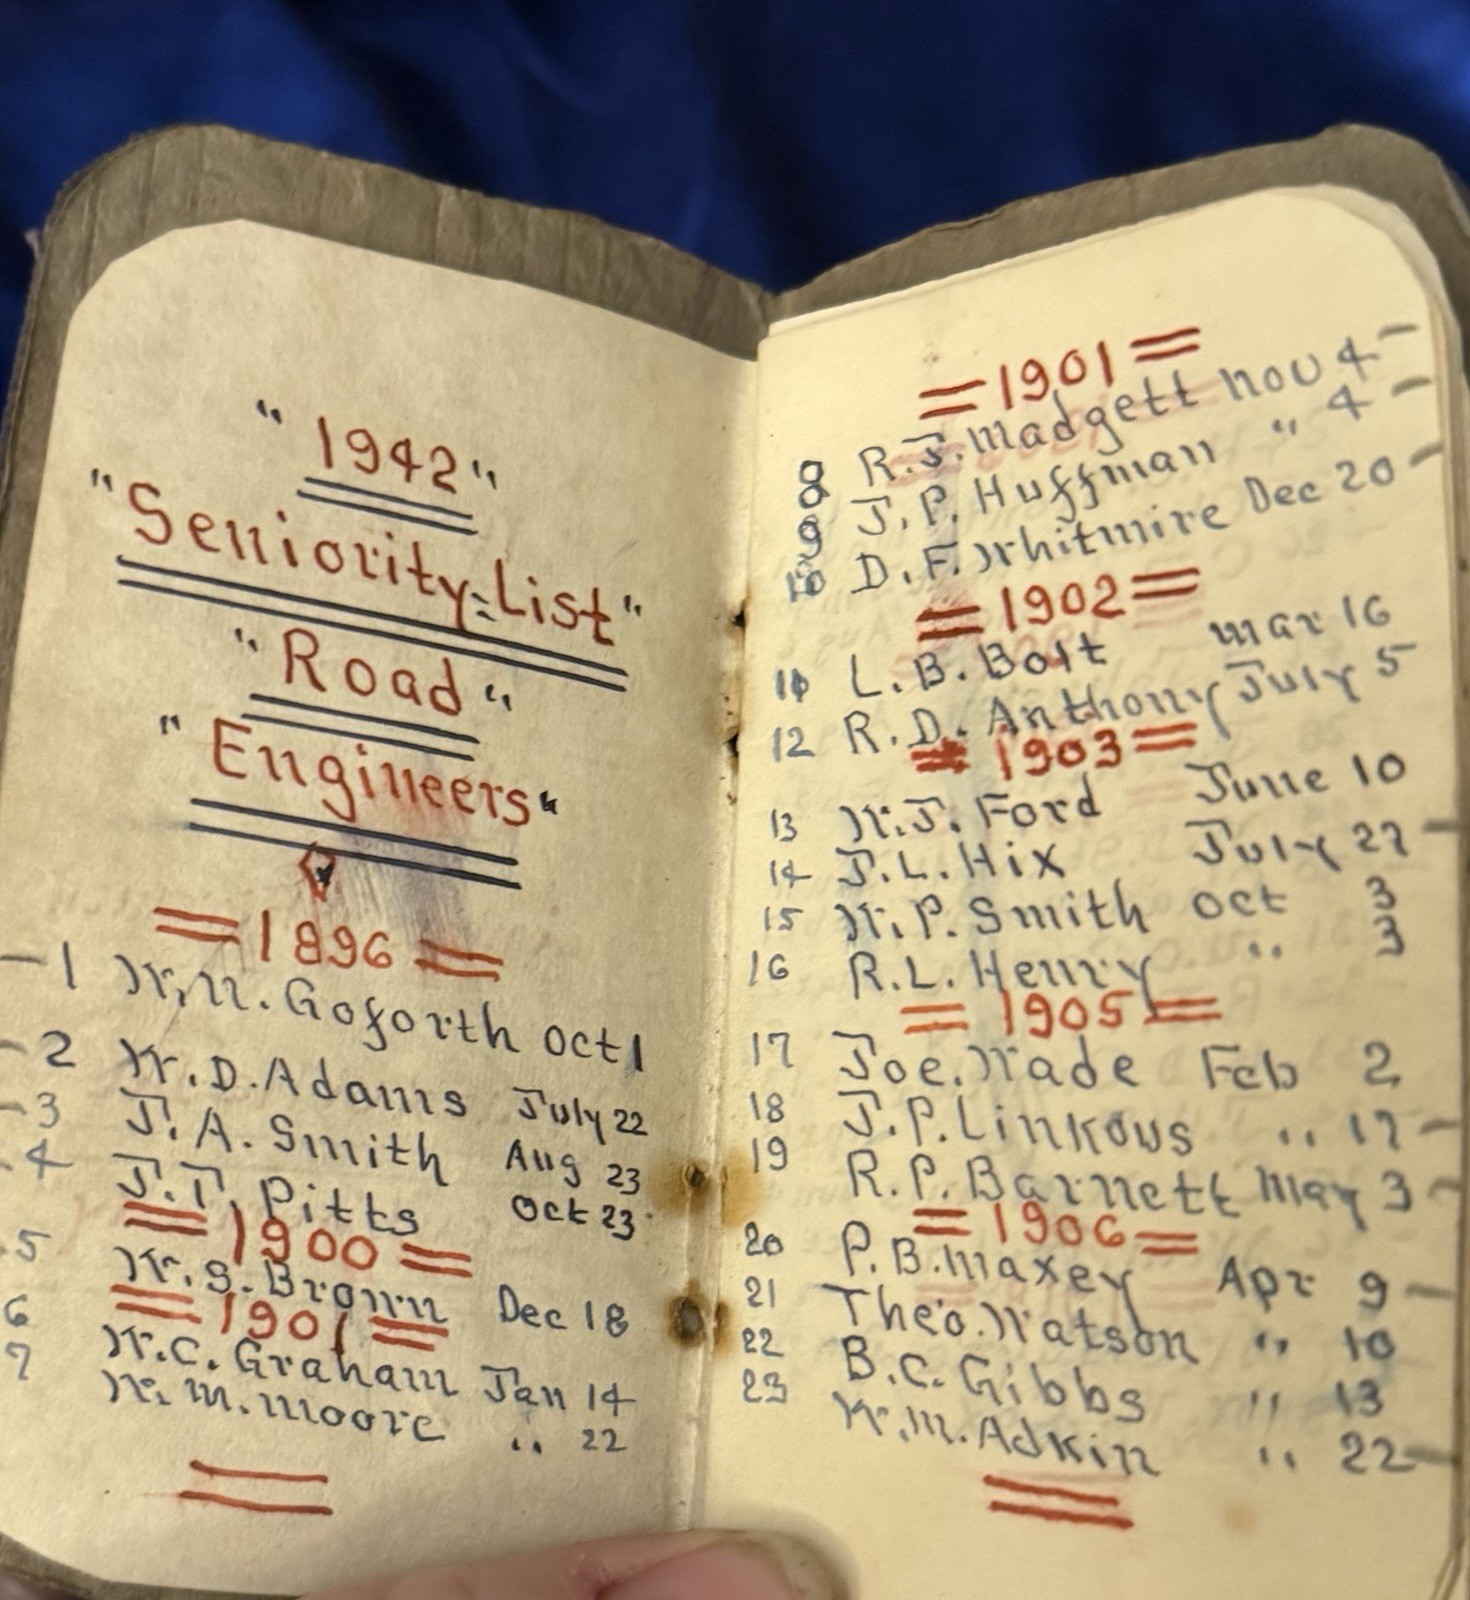 "1942"
"Seniority-List"
"Road"
"Engineers"
=1896=
-1 W.N. Goforth Oct 1
-2 W.D. Adams July 22
-3 J.A. Smith Aug 23
-4 J.T. Pitts Oct 23
=1900=
5 W.S. Brown Dec 18
=1901=
6 W.C. Graham Jan 14
7 W.M. Moore " 22
=1901=
8 R.J. Madgett Nov 4 -
9 J.P. Huffman " 4 -
10 D.F. Whitmire Dec 20 -
=1902=
11 L.B. Bolt Mar 16
12 R.D. Anthony July 5
=1903=
13 W.J. Ford June 10
14 J.L. Hix July 27 -
15 W.P. Smith Oct 3
16 R.L. Henry " 3
=1905=
17 Joe. Wade Feb 2
18 J.P. Linkous " 17 -
19 R.P. Barnett May 3 -
=1906=
20 P.B. Maxey Apr 9 -
21 Theo. Watson " 10
22 B.C. Gibbs " 13
23 W.M. Adkin " 22 -